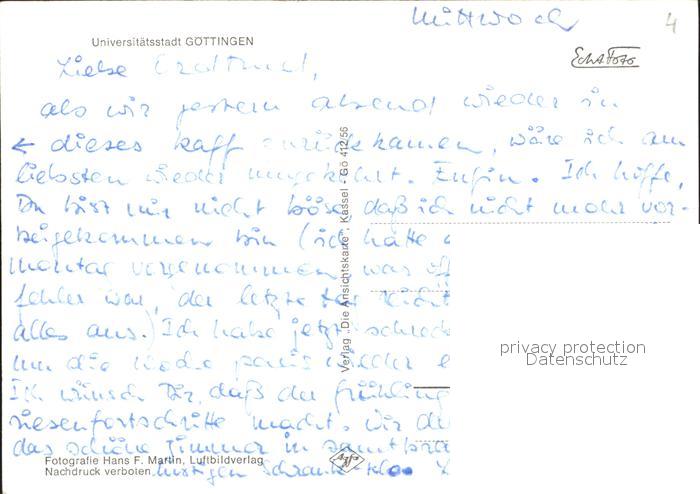 Mittwoch
4
Universitätsstadt GÖTTINGEN
Echt Foto
Liebe
als wir gestern abend wieder in
← dieses Kaff zurückkamen, wäre ich am
liebsten wieder umgekehrt. Ich hoffe,
Du bist mir nicht böse, daß ich nicht mehr vor-
beigekommen bin (ich hatte
vorgenommen, was
fehler war, der letzte Tag
alles aus.) Ich habe jetzt
um die wieder
Ich wünsch Dir, daß der Frühling
riesenfortschritte macht. Wir
das schöne Zimmer in
lustigen Schrank-Klo.
Verlag „Die Ansichtskarte", Kassel · Gö 412/56
privacy protection
Datenschutz
Fotografie Hans F. Martin, Luftbildverlag
Nachdruck verboten
Agfa